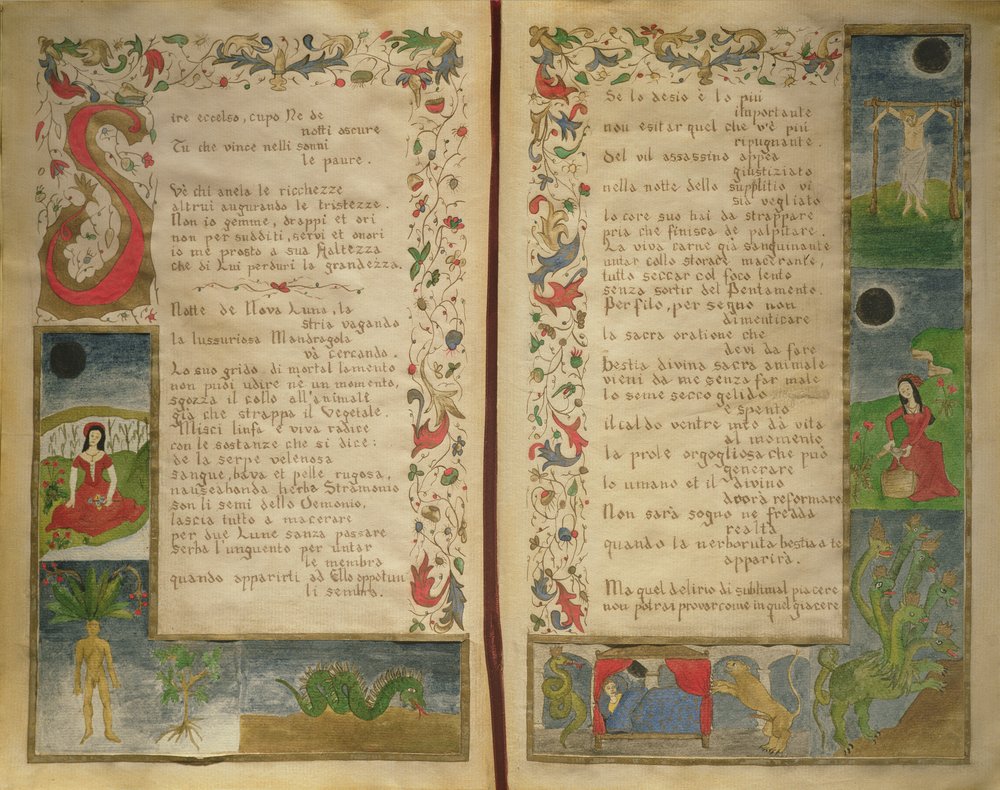 Sire eccelso, cupo Re de
notti oscure
Tu che vince nelli sonni
le paure.
V'è chi anela le ricchezze
altrui augurando le tristezze.
Non io gemme, drappi et ori
non per sudditi, servi et onori
io me prosto a sua Haltezza
che di Lui perduri la grandezza.
Notte de Nova Luna, la
stria vagando
la lussuriosa Mandragola
và cercando.
Lo suo grido di mortal lamento
non puoi udire ne un momento,
sgozza il collo all'animale
già che strappa il Vegetale.
Misci linfa e viva radice
con le sostanze che si dice:
de la serpe velenosa
sangue, bava et pelle rugosa,
nauseabonda herba Stramonio
son li semi dello Demonio,
lascia tutto a macerare
per due Lune sanza passare
serba l'unguento per untar
le membra
quando apparirti ad Ella oppotun
li sembra.
Se lo desio è la più
importante
non esitar quel che v'è più
ripugnante.
del vil assassino appea
giustiziato
nella notte dello supplitio vi
sia vegliato
lo core suo hai da strappare
pria che finisca de palpitare.
La viva carne già sanguinante
untar collo storace macerante,
tutta seccar col foco lento
senza sortir del Pentamento.
Per filo, per segno non
dimenticare
la sacra oratione che
devi da fare
bestia divina sacra animale
vieni da me senza far male
lo seme secco gelido
e spento
il caldo ventre mio dà vita
al momento
la prole orgogliosa che può
generare
lo umano et il divino
dovrà reformare
Non sarà sogno ne fredda
realtà
quando la nerboruta bestia a te
apparirà.
Ma quel delirio di sublimal piacere
non potrai provar come in quel giacere